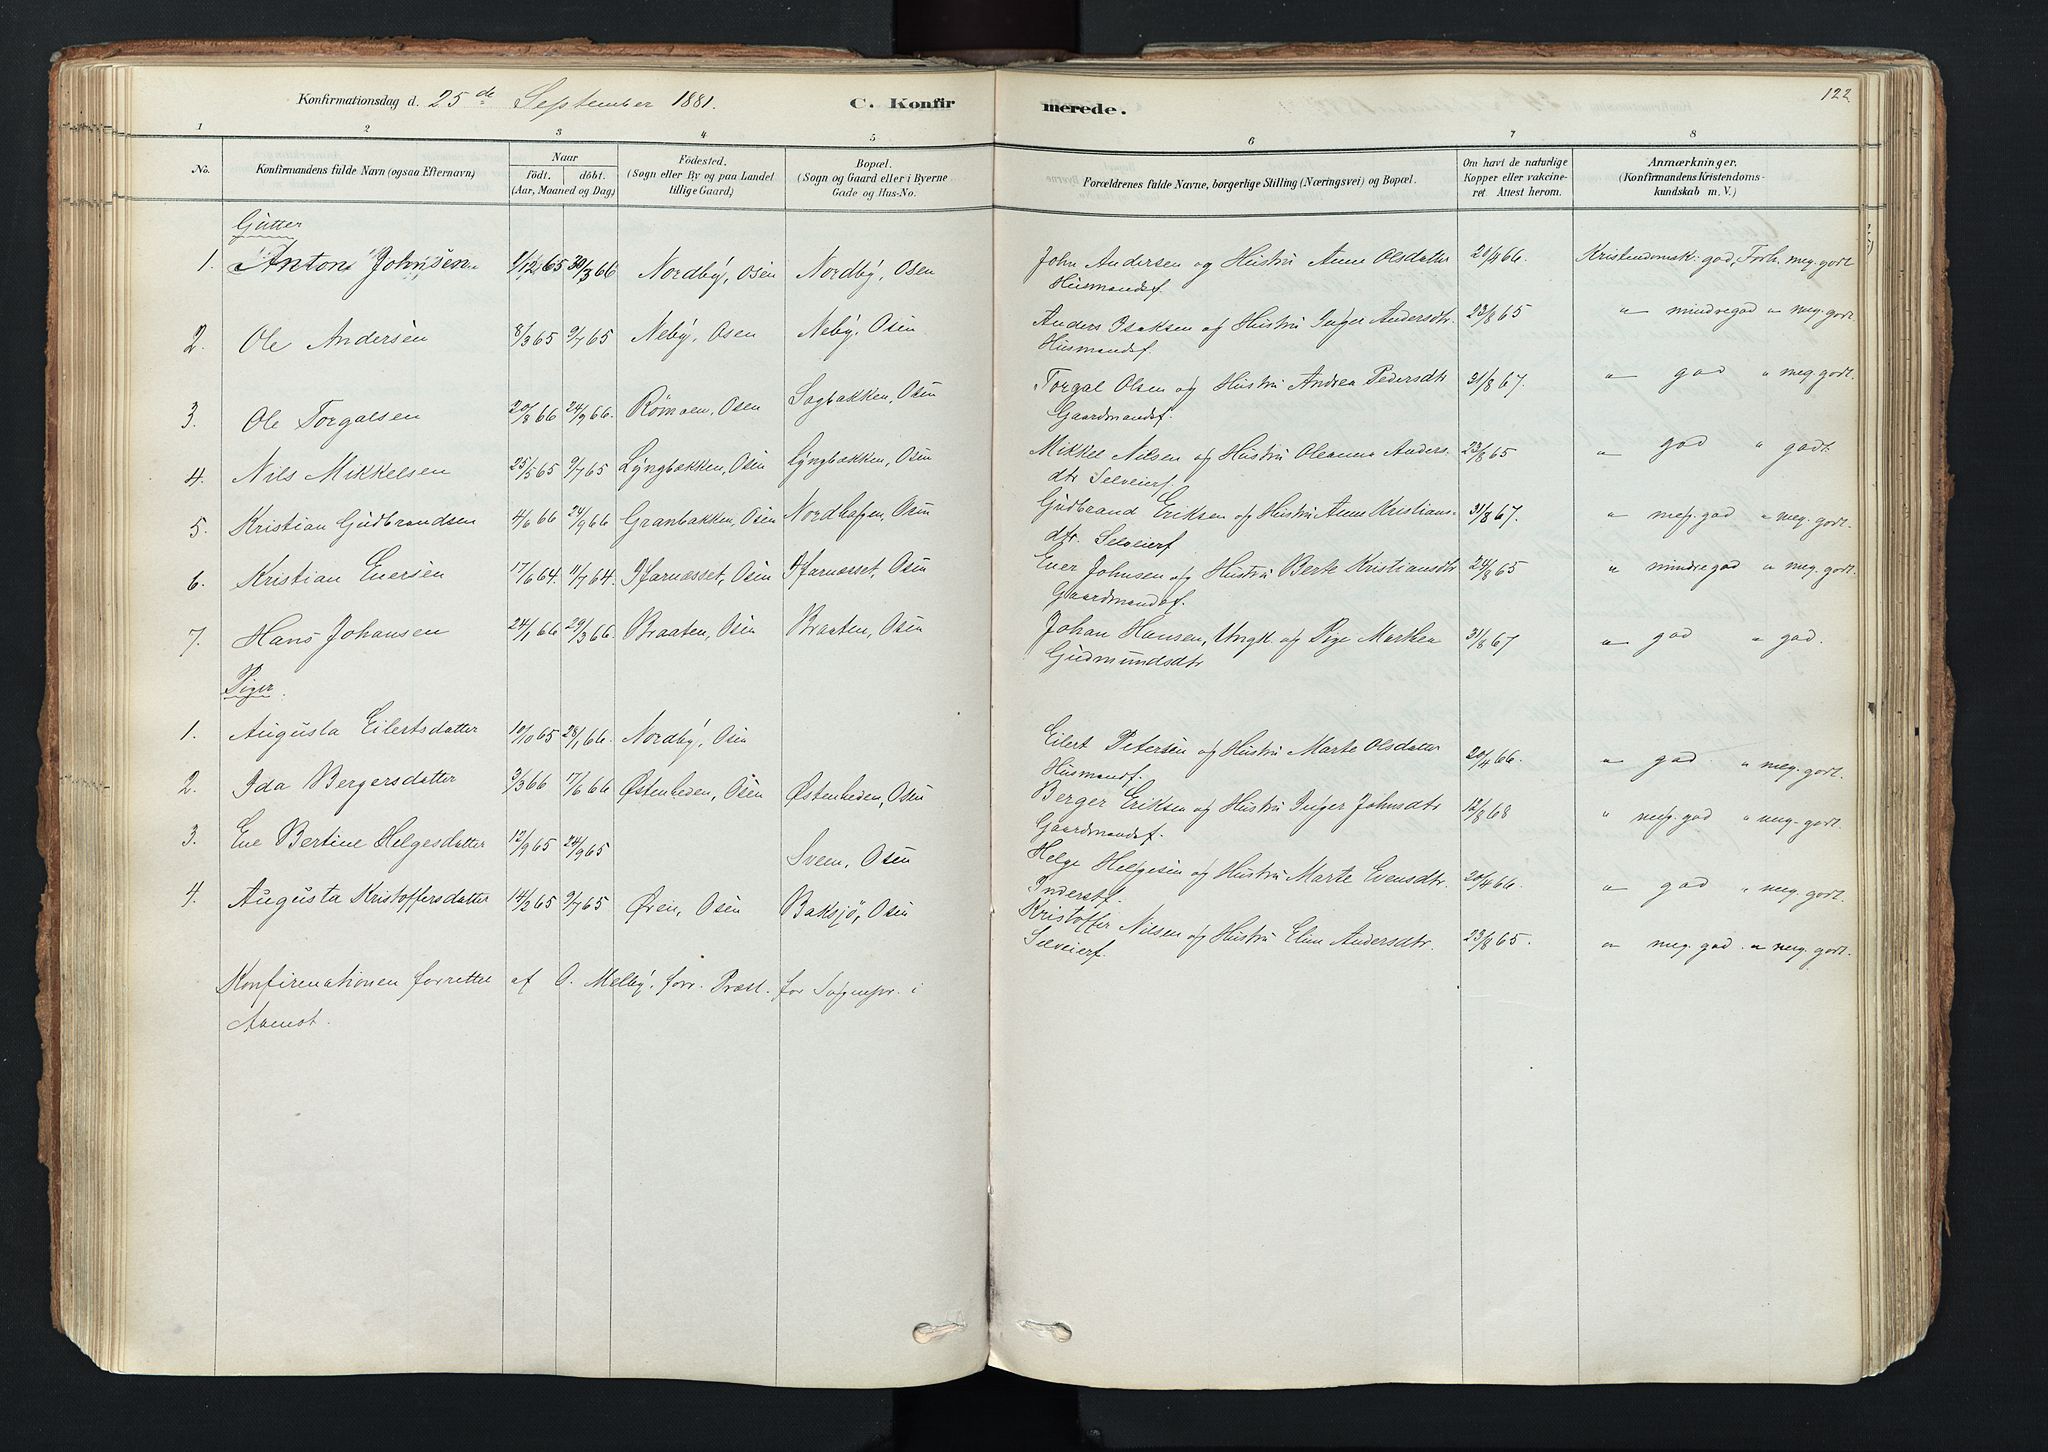 Konfirmationsdag d. 25de September 1881. C. Konfirmerede. 122
1 2 3 4 5 6 7 8
No. Konfirmandens fulde Navn (ogsaa Efternavn) Naar Födt. döbt. (Aar, Maaned og Dag) Födested. (Sogn eller By og paa Landet tillige Gaard) Bopæl. (Sogn og Gaard eller i Byerne Gade og Hus-No. Forældrenes fulde Navne, borgerlige Stilling (Næringsvei) og Bopæl. Om havt de naturlige Kopper eller vakcineret Attest herom. Anmærkninger. (Konfirmandens Kristendomskundskab m. V.)
Gutter
1. Anton Johnsen 1/12 65 30/3 66 Nordby, Osen Nordby, Osen John Andersen og Hustru Anne Olsdatter 20/4 66. Kristendomsk: god, Forh. meg. godt
Husmandsf.
2. Ole Andersen 8/3 65 9/7 65 Neby, Osen Neby, Osen Anders Isaksen og Hustru Inger Andersdtr. 23/8 65 " mindre god " meg. godt.
Husmandsf.
3. Ole Torgalsen 20/8 66 24/9 66. Römoen, Osen Sagbakken, Osen Torgal Olsen og Hustru Andrea Pedersdtr 31/8 67. " god " meg. godt.
Gaardmandsf.
4. Nils Mikkelsen 25/5 65 9/7 65 Lyngbakken, Osen Lyngbakken, Osen Mikkel Nilsen og Hustru Oleanna Anders- 23/8 65 " god " godt
dtr. Selveierf.
5. Kristian Gudbrandsen 4/6 66 24/9 66 Granbakken, Osen Nordhagen, Osen Gudbrand Eriksen og Hustru Anne Kristians- 31/8 67. " meg. god " meg. godt.
dtr. Selveierf
6. Kristian Enersen 17/6 64. 11/7 64. Ifarnæsset, Osen Ifarnæsset, Osen Ener Johnsen og Hustru Berte Kristiansdtr 24/8 65 " mindre god " meg. godt.
Gaardmandsf.
7. Hans Johansen 24/1 66 29/3 66. Braaten, Osen Braaten, Osen Johan Hansen, Ungk. og Pige Marthea 31/8 67 " god " god.
Gudmundsdtr
Piger.
1. Augusta Eilertsdatter 10/10 65 28/1 66. Nordby, Osen Eilert Petersen og Hustru Marte Olsdatter 20/4 66. " god " meg. godt.
Husmandf.
2. Ida Bergersdatter 3/3 66 17/6 66 Østenheden, Osen Østenheden, Osen Berger Eriksen og Hustru Inger Johnsdtr 12/8 68 " meg. god " meg. godt.
Gaardmandsf.
3. Ene Bertine Helgesdatter 12/9 65 24/9 65 Sveen, Osen Helge Helgesen og Hustru Marte Evensdtr. 20/4 66. " god " meg. godt.
Inderstf.
4. Augusta Kristoffersdatter 14/2 65 9/7 65 Øren, Osen Baksjö, Osen Kristoffer Nilsen og Hustru Eline Andersdtr. 23/8 65. " meg. god " meg. godt.
Selveierf.
Konfirmationen forrettet af O. Melby, forr. Præst. for Sognepr. i
Aamot.